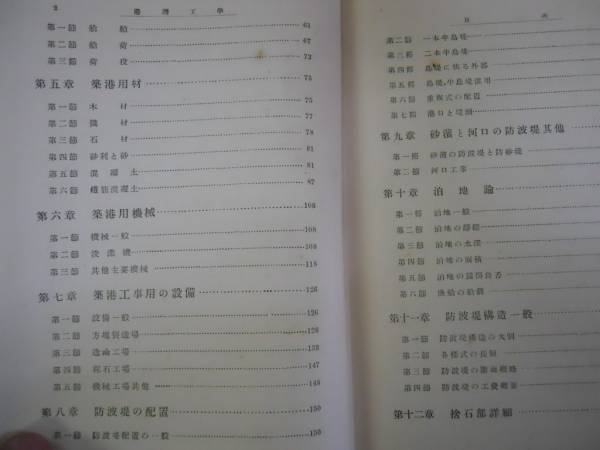 2　港灣工學
第一節　船舶　61
第二節　船荷　67
第三節　荷役　73
第五章　築港用材　75
第一節　木材　75
第二節　鐵材　77
第三節　石材　78
第四節　砂利と砂　81
第五節　混凝土　81
第六節　鐵筋混凝土　87
第六章　築港用機械　108
第一節　機械一般　108
第二節　浚渫機　108
第三節　其他主要機械　118
第七章　築港工事用の設備　126
第一節　設備一般　126
第二節　方塊製造場　128
第三節　造函工場　133
第四節　採石工場　147
第五節　機械工場其他　148
第八章　防波堤の配置　150
第一節　防波堤配置の一般　150
目次
第二節　一本半島堤
第三節　二本半島堤
第四節　島堤に依る外郭
第五節　島堤、半島堤併用
第六節　重複式の配置
第七節　港口と堤頭
第九章　砂濱と河口の防波堤其他
第一節　砂濱の防波堤と防砂堤
第二節　河口工事
第十章　泊地論
第一節　泊地一般
第二節　泊地の靜穩
第三節　泊地の水深
第四節　泊地の面積
第五節　泊地の錨掻良否
第六節　漁船の船溜
第十一章　防波堤構造一般
第一節　防波堤構造の大別
第二節　各樣式の長短
第三節　防波堤の斷面概略
第四節　防波堤の工費概算
第十二章　捨石部詳細